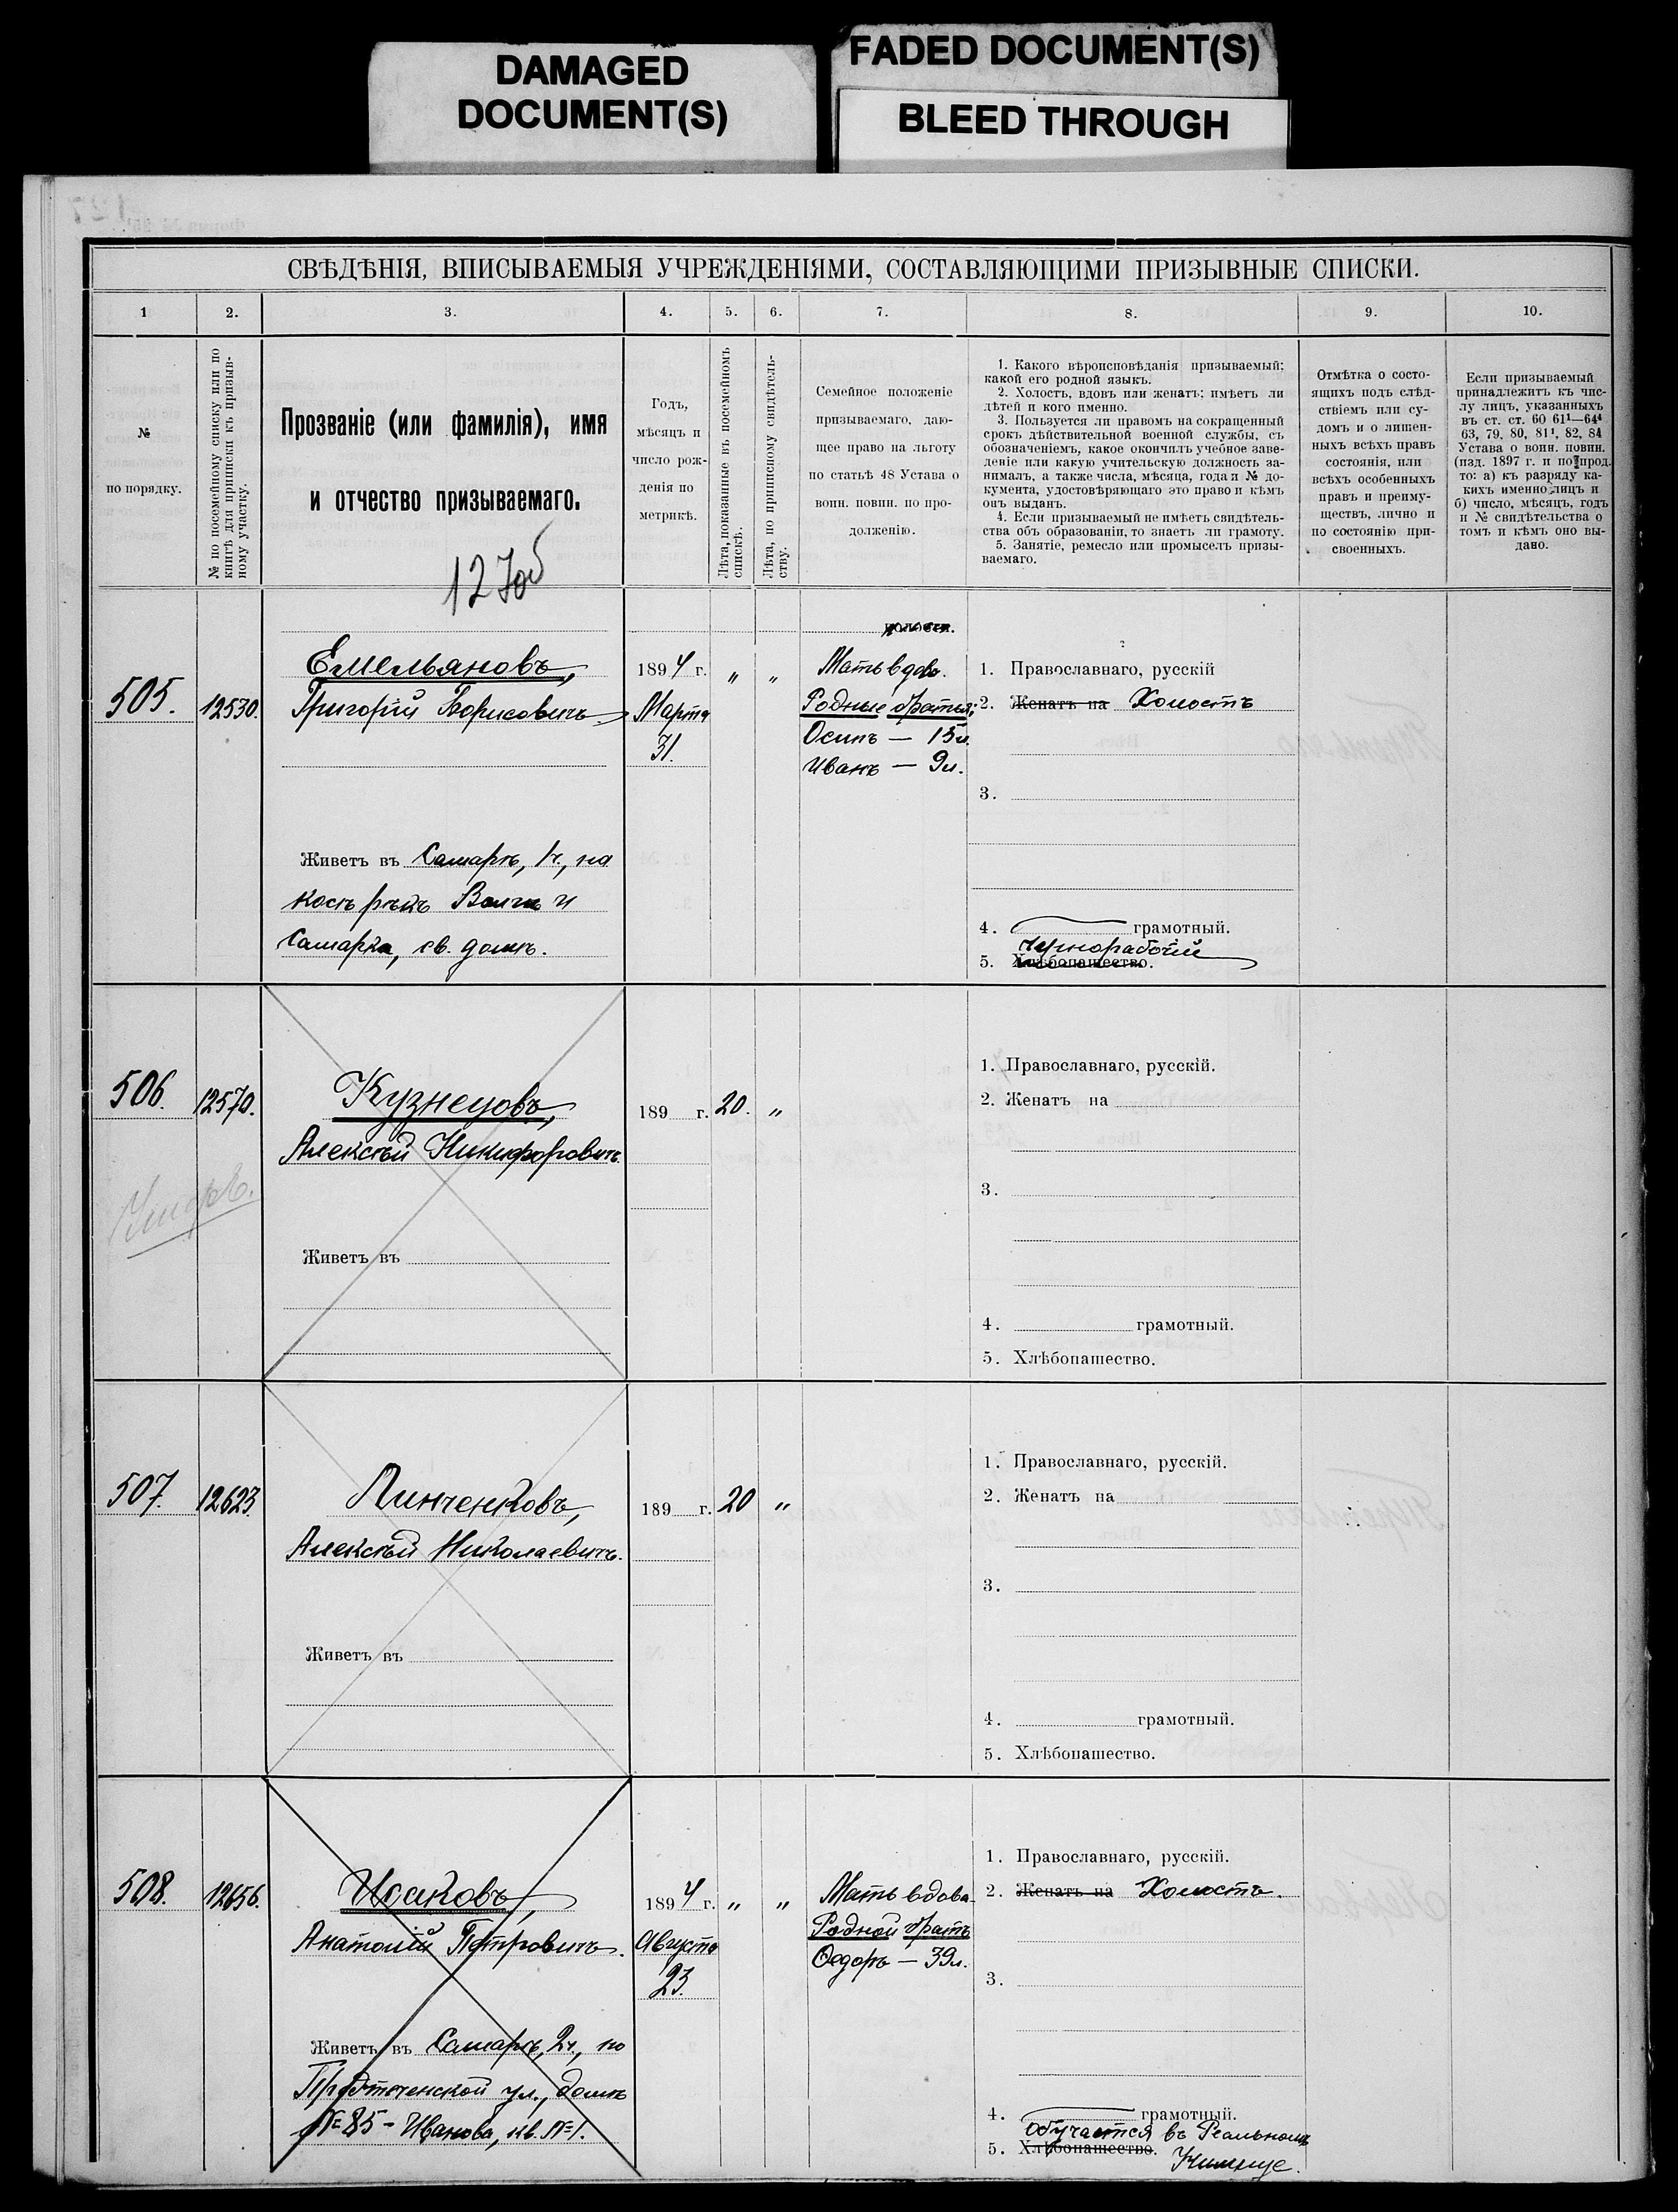 DAMAGED
DOCUMENT(S)
FADED DOCUMENT(S)
BLEED THROUGH
СВѢДѢНІЯ, ВПИСЫВАЕМЫЯ УЧРЕЖДЕНІЯМИ, СОСТАВЛЯЮЩИМИ ПРИЗЫВНЫЕ СПИСКИ.
1 2. 3. 4. 5. 6. 7. 8. 9. 10.
№
по порядку.
№ по посемейному списку или по
книгѣ для приписки къ призыв-
ному участку.
Прозваніе (или фамилія), имя
и отчество призываемаго.
127об
Годъ,
мѣсяцъ и
число рож-
денія по
метрикѣ.
Лѣта, показанные въ посемейномъ
спискѣ.
Лѣта, по приписному свидѣтель-
ству.
Семейное положеніе
призываемаго, даю-
щее право на льготу
по статьѣ 48 Устава о
воин. повин. по про-
долженію.
1. Какого вѣроисповѣданія призываемый;
какой его родной языкъ.
2. Холостъ, вдовъ или женатъ; имѣетъ ли
дѣтей и кого именно.
3. Пользуется ли правомъ на сокращенный
срокъ дѣйствительной военной службы, съ
обозначеніемъ, какое окончилъ учебное заве-
деніе или какую учительскую должность за-
нималъ, а также числа, мѣсяца, года и № до-
кумента, удостовѣряющаго это право и кѣмъ
онъ выданъ.
4. Если призываемый не имѣетъ свидѣтель-
ства объ образованіи, то знаетъ ли грамоту.
5. Занятіе, ремесло или промыселъ призы-
ваемаго.
Отмѣтка о состо-
ящихъ подъ слѣд-
ствіемъ или су-
домъ и о лишен-
ныхъ всѣхъ правъ
состоянія, или
всѣхъ особенныхъ
правъ и преиму-
ществъ, лично и
по состоянію при-
своенныхъ.
Если призываемый
принадлежитъ къ чис-
лу лицъ, указанныхъ
въ ст. ст. 60 61¹—64⁴
63, 79, 80, 81¹, 82, 84
Устава о воин. повин.
(изд. 1897 г. и по прод.
то: а) къ разряду ка-
кихъ именно лицъ и
б) число, мѣсяцъ, годъ
и № свидѣтельства о
томъ и кѣмъ оно вы-
дано.
505. 12530.
Емельяновъ,
Григорій Борисовичъ
Живетъ въ Самарѣ, 1ч., на
косѣ рѣкъ Волги и
Самарки, св. домъ.
1894 г. " "
Марта
31.
Мать вдов.
Родные братья:
Осипъ — 15 л.
Иванъ — 9 л.
1. Православнаго, русскій
2. Женатъ на Холостъ
3.
4. грамотный.
чернорабочій
5. Хлѣбопашество.
506. 12570.
Кузнецовъ,
Алексѣй Никифоровичъ.
Живетъ въ
189 г. 20. "
1. Православнаго, русскій.
2. Женатъ на
3.
4. грамотный.
5. Хлѣбопашество.
507. 12623.
Линченковъ,
Алексѣй Николаевичъ.
Живетъ въ
189 г. 20 "
1. Православнаго, русскій.
2. Женатъ на
3.
4. грамотный.
5. Хлѣбопашество.
508. 12656.
Исаковъ,
Анатолій Петровичъ.
Живетъ въ Самарѣ, 2ч., по
Предтеченской ул., домъ
№ 85 - Иванова, кв. № 1.
1894 г. " "
Августа
23.
Мать вдова.
Родной братъ
Ѳедоръ — 39 л.
1. Православнаго, русскій.
2. Женатъ на Холостъ.
3.
4. грамотный.
обучается въ Реальномъ
5. Хлѣбопашество. Училище.